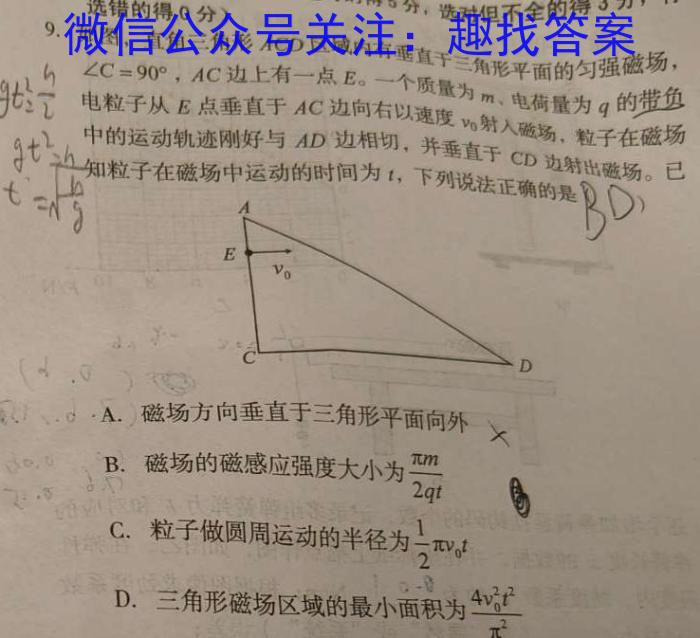 选错的得0分)
5分，选对但不全的得3分，有
微信公众号关注：趣找答案
9. 直角三角形ACD区域内有垂直于三角形平面的匀强磁场，
∠C=90°，AC边上有一点E。一个质量为m、电荷量为q的带负
电粒子从E点垂直于AC边向右以速度v₀射入磁场，粒子在磁场
中的运动轨迹刚好与AD边相切，并垂直于CD边射出磁场。已
知粒子在磁场中运动的时间为t，下列说法正确的是 BD)
gt²
gt²=h
A
E
v₀
C
D
A. 磁场方向垂直于三角形平面向外 ×
B. 磁场的磁感应强度大小为πm/2qt
C. 粒子做圆周运动的半径为1/2πv₀t
D. 三角形磁场区域的最小面积为4v₀²t²/π²